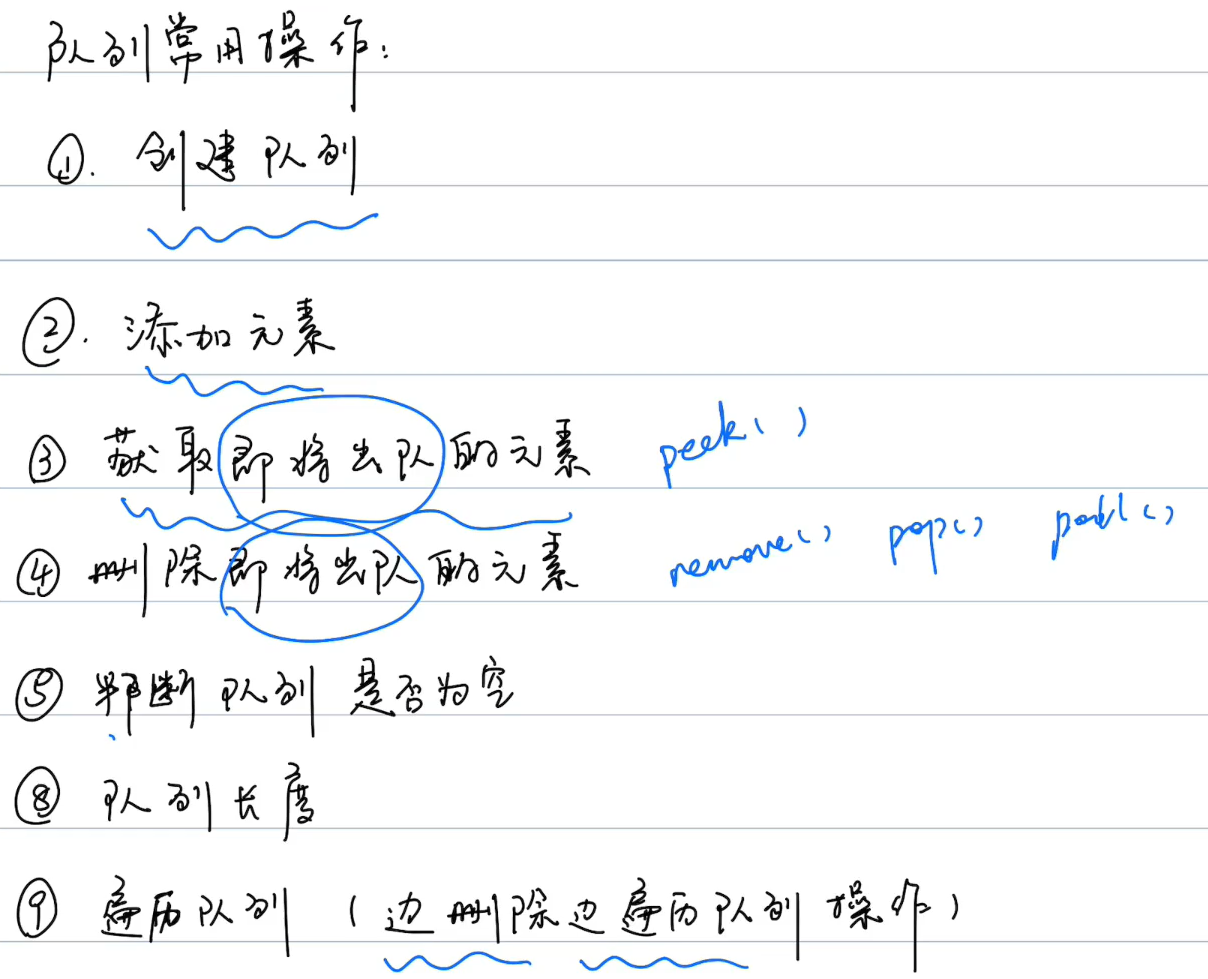 队列常用操作:
①. 创建队列
②. 添加元素
③ 获取即将出队的元素 peek()
④ 删除即将出队的元素 remove() pop() poll()
⑤ 判断队列是否为空
⑧ 队列长度
⑨ 遍历队列 (边删除边遍历队列操作)